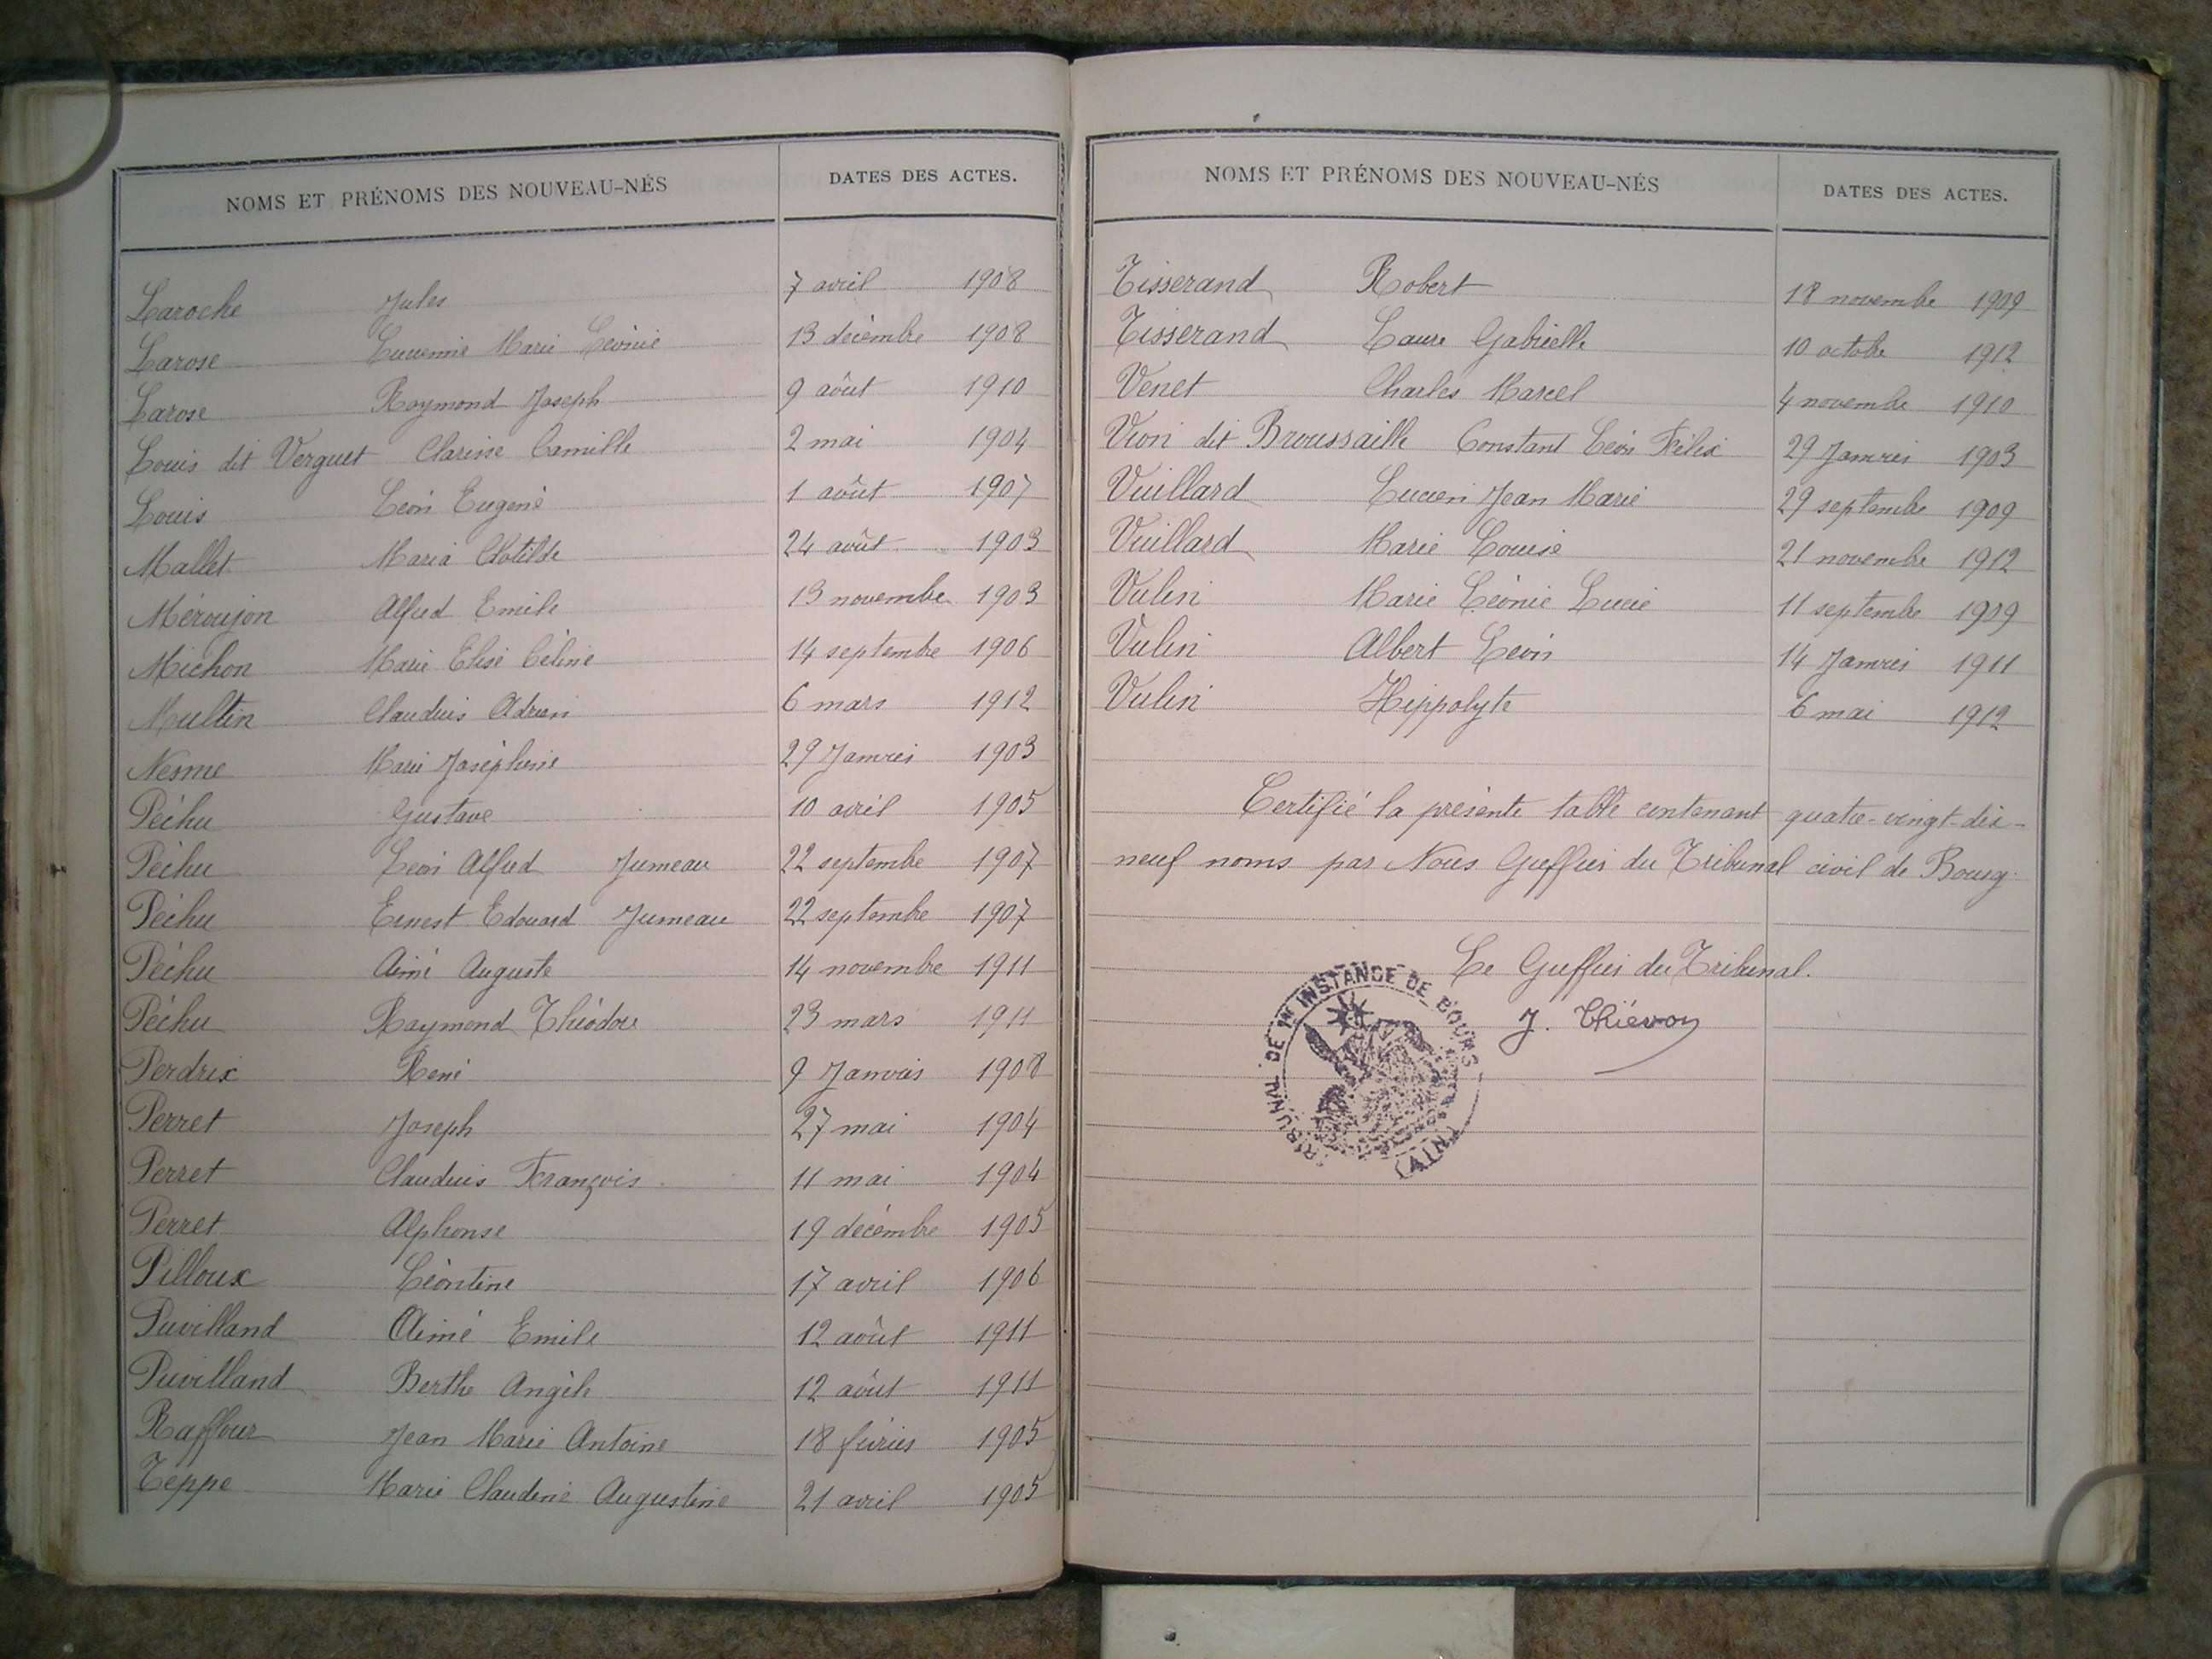 NOMS ET PRÉNOMS DES NOUVEAU-NÉS DATES DES ACTES.
Laroche Jules 7 avril 1908
Larose Marie Léonie 13 décembre 1908
Larose Raymond Joseph 9 août 1910
Louis dit Verguet Clarisse Camille 2 mai 1904
Louis Léon Eugène 1 août 1907
Mallet Maria Clotilde 24 août 1903
Méroujon Alfred Emile 13 novembre 1903
Michon Marie Elise Céline 14 septembre 1906
Multin Claudius Adrien 6 mars 1912
Nesme Marie Joséphine 29 Janvier 1903
Péchu Gustave 10 avril 1905
Péchu Léon Alfred Jumeau 22 septembre 1907
Péchu Ernest Edouard Jumeau 22 septembre 1907
Péchu Aimé Auguste 14 novembre 1911
Péchu Raymond Théodore 23 mars 1911
Perdrix René 9 Janvier 1908
Perret Joseph 27 mai 1904
Perret Claudius François 11 mai 1904
Perret Alphonse 19 décembre 1905
Pilloux Léontine 17 avril 1906
Puvilland Aimé Emile 12 août 1911
Puvilland Berthe Angèle 12 août 1911
Raffour Jean Marie Antoine 18 février 1905
Teppe Marie Claudine Augustine 21 avril 1905
NOMS ET PRÉNOMS DES NOUVEAU-NÉS DATES DES ACTES.
Tisserand Robert 18 novembre 1909
Tisserand Laure Gabrielle 10 octobre 1912
Venet Charles Marcel 4 novembre 1910
Vion dit Broussaille Constant Léon Félix 29 Janvier 1903
Vuillard Lucien Jean Marie 29 septembre 1909
Vuillard Marie Louise 21 novembre 1912
Vulin Marie Léonie Lucie 11 septembre 1909
Vulin Albert Léon 14 Janvier 1911
Vulin Hippolyte 6 mai 1912
Certifié la présente table contenant quatre-vingt-dix-
neuf noms par Nous Greffier du Tribunal civil de Bourg.
Le Greffier du Tribunal.
J. Thiévon
TRIBUNAL DE 1re INSTANCE DE BOURG
(AIN)